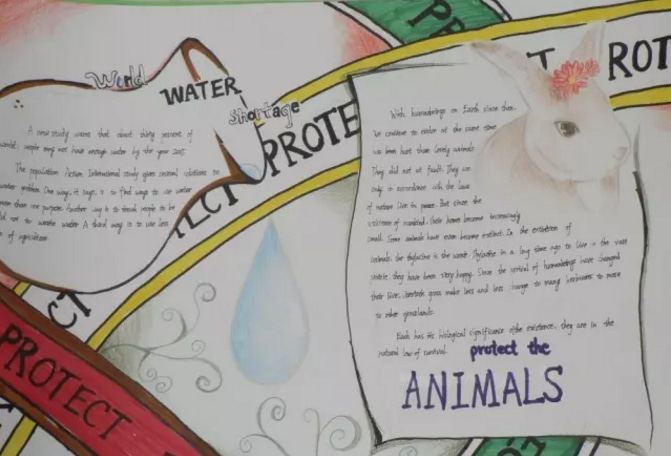 World
WATER
Shortage
A new study warns that about thirty percent of
people may not have enough water by the year
The population Action International study gives several solutions to
water problem. One way, it says, is to find ways to use water
more than one purpose. Another way is to teach people to be
not to waste water. A third way is to use less
of agriculture
PROTECT
PROTE
PROTECT
ROT
With humanbeings on Earth since then.
We continue to evolve at the same time
has been hurt those lovely animals.
They did not at fault. They are
only in accordance with the laws
of nature live in peace. But since the
existence of mankind, their homes become increasingly
small. Some animals have even become extinct. In the extinction of
animals, the thylacine is the worst. Thylacine in a long time ago to live in the vast
they have been very happy. Since the arrival of humanbeings have changed
their lives. make less and less change to many
to other grasslands.
Each has its biological significance of the existence, they are in the
natural law of survival.
protect the
ANIMALS